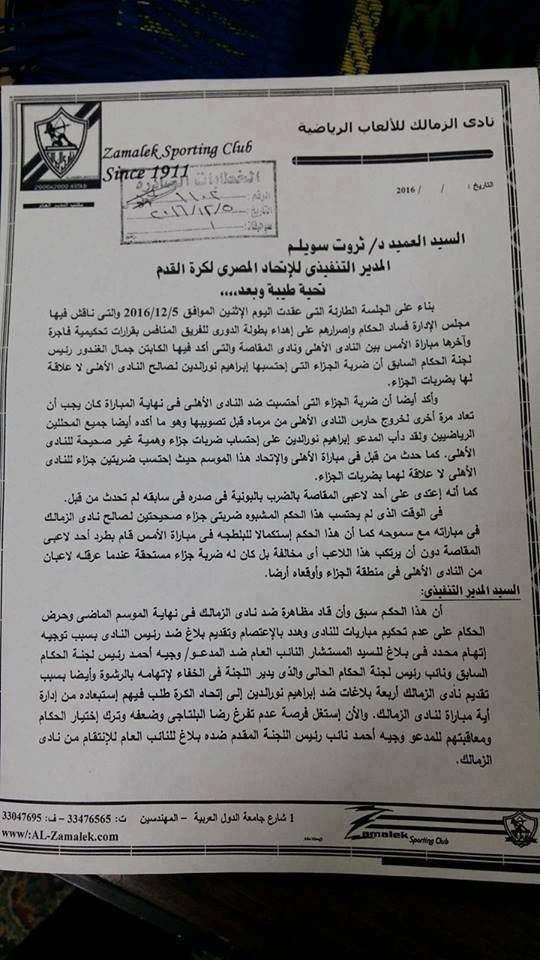 نادى الزمالك للألعاب الرياضية
Zamalek Sporting Club
Since 1911
مكتب المدير العام
التاريخ : / / 2016
الخطابات الصادره
الرقم: ١١٠٢
التاريخ: ٢٠١٦/١٢/٥
١
السيد العميد د/ ثروت سويلم
المدير التنفيذى للإتحاد المصرى لكرة القدم
تحية طيبة وبعد،،،،
بناء على الجلسة الطارئة التى عقدت اليوم الإثنين الموافق 2016/12/5 والتى ناقش فيها
مجلس الإدارة فساد الحكام وإصرارهم على إهداء بطولة الدورى للفريق المنافس بقرارات تحكيمية فاجرة
وآخرها مباراة الأمس بين النادى الأهلى ونادى المقاصة والتى أكد فيها الكابتن جمال الغندور رئيس
لجنة الحكام السابق أن ضربة الجزاء التى إحتسبها إبراهيم نورالدين لصالح النادى الأهلى لا علاقة
لها بضربات الجزاء.
وأكد أيضا أن ضربة الجزاء التى أحتسبت ضد النادى الأهلى فى نهاية المباراة كان يجب أن
تعاد مرة أخرى لخروج حارس النادى الأهلى من مرماه قبل تصويبها وهو ما أكده أيضا جميع المحللين
الرياضيين ولقد دأب المدعو إبراهيم نورالدين على إحتساب ضربات جزاء وهمية غير صحيحة للنادى
الأهلى. كما حدث من قبل فى مباراة الأهلى والإتحاد هذا الموسم حيث إحتسب ضربتين جزاء للنادى
الأهلى لا علاقة لهما بضربات الجزاء.
كما أنه إعتدى على أحد لاعبى المقاصة بالضرب بالبونية فى صدره فى سابقه لم تحدث من قبل.
فى الوقت الذى لم يحتسب هذا الحكم المشبوه ضربتى جزاء صحيحتين لصالح نادى الزمالك
فى مباراته مع سموحه كما أن هذا الحكم إستكمالا للبلطجه فى مباراة الأمس قام بطرد أحد لاعبى
المقاصة دون أن يرتكب هذا اللاعب أى مخالفة بل كان له ضربة جزاء مستحقة عندما عرقله لاعبان
من النادى الأهلى فى منطقة الجزاء وأوقعاه أرضا.
السيد المدير التنفيذى:
أن هذا الحكم سبق وأن قاد مظاهرة ضد نادى الزمالك فى نهاية الموسم الماضى وحرض
الحكام على عدم تحكيم مباريات للنادى وهدد بالإعتصام وتقديم بلاغ ضد رئيس النادى بسبب توجيه
إتهام محدد فى بلاغ للسيد المستشار النائب العام ضد المدعو/ وجيه أحمد رئيس لجنة الحكام
السابق ونائب رئيس لجنة الحكام الحالى والذى يدير اللجنة فى الخفاء لإتهامه بالرشوة وأيضا بسبب
تقديم نادى الزمالك أربعة بلاغات ضد إبراهيم نورالدين إلى إتحاد الكرة طلب فيهم إستبعاده من إدارة
أية مباراة لنادى الزمالك. والأن إستغل فرصة عدم تفرغ رضا البلتاجى وضعفه وترك إختيار الحكام
ومعاقبتهم للمدعو وجيه أحمد نائب رئيس اللجنة المقدم ضده بلاغ للنائب العام للإنتقام من نادى
الزمالك.
1 شارع جامعة الدول العربية – المهندسين ت: 33476565 – ف: 33047695
www/:AL-Zamalek.com
Zamalek
Sporting Club